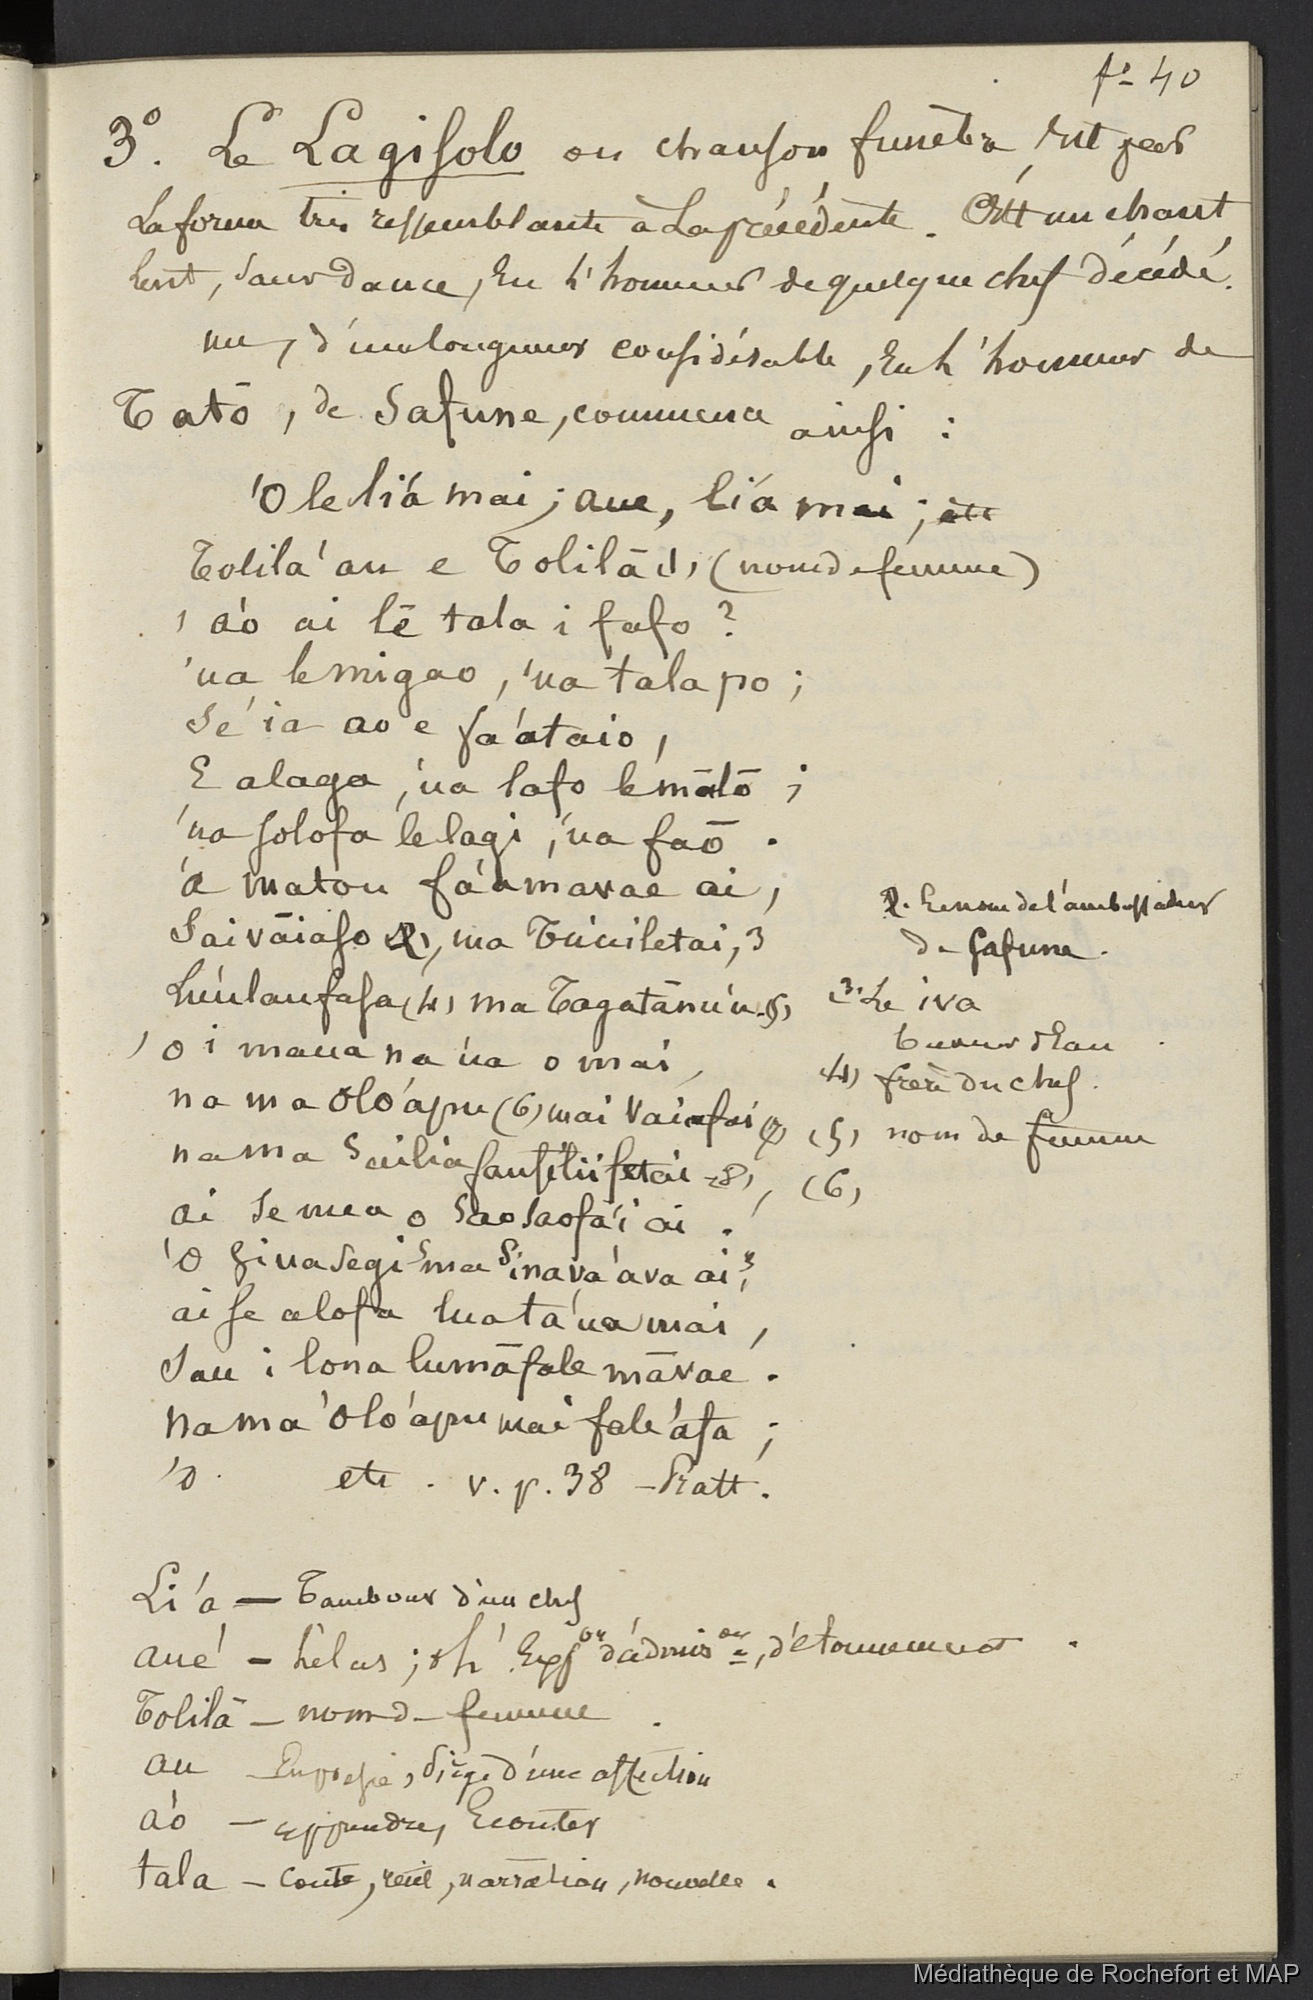 fº 40
3º. Le Lagisolo ou chanson funèbre, est par
la forme très ressemblante à la précédente. C'est un chant
lent, sans dance, en l'honneur de quelque chef décédé.
un, d'une longueur considérable, en l'honneur de
Tatō, de Safune, commence ainsi :
'O le li'a mai; aue, li'a mai; etc
Tolila'au e Tolilā (1) (nom de femme)
'a'o ai lē tala i fafo ?
'ua le migao, 'ua tala po;
Se'ia ao e fa'ataio,
E alaga, 'ua lafo le mātō;
'ua solofa le lagi, 'ua faō.
'a matou fa'amavae ai,
Saivāiaso (2), ma Tu'uiletai, 3
Lu'ulaufasa (4) ma Tagatānu'u (5)
'o i maua na 'ua o mai,
na ma Olo'apu (6) mai Vaiafai (7)
na ma Sauilia fausiliifetai (8),
ai se mea o saosaofa'i ai.
'O Sinasegi ma Sinava'ava ai,
ai se alofa luata'ua mai,
Sau i lona lumāfale māvae.
na ma 'Olo'apu mai fale'ata;
'O etc. v. p. 38 - Pratt.
2. Le nom de l'ambassadeur
de Safune.
(3) Le iva
tueur d'eau
(4) frère du chef.
(5) nom de femme
(6)
Li'a — Tambour d'un chef
aué - hélas; oh ! Expson d'admison, d'étonnement.
Tolilā — nom de femme.
au — En poésie, siège d'une affection
a'o — apprendre, Ecouter
tala — conte, récit, narration, nouvelle.
Médiathèque de Rochefort et MAP